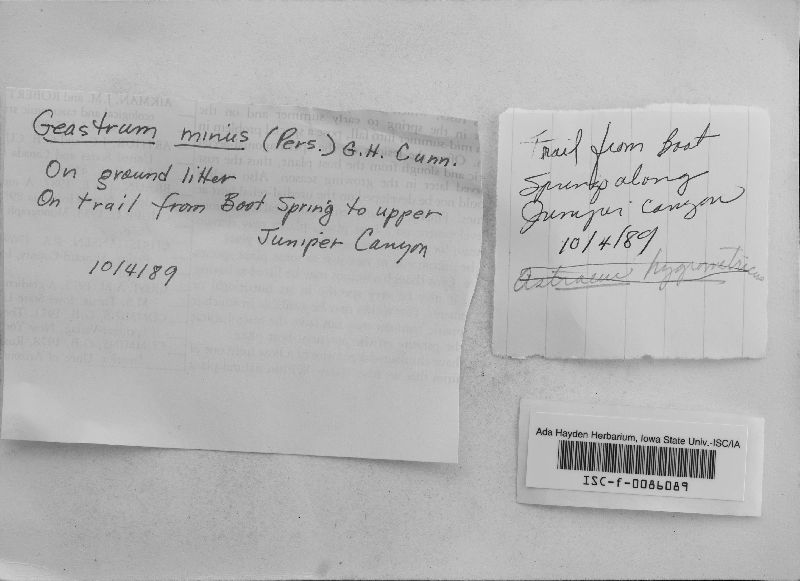 Geastrum minus (Pers.) G.H. Cunn.
On ground litter
On trail from Boot Spring to upper
Juniper Canyon
10/4/89
Trail from Boot
Spring along
Juniper Canyon
10/4/89
Astraeus hygrometricus
Ada Hayden Herbarium, Iowa State Univ.-ISC/IA
ISC-f-0086089